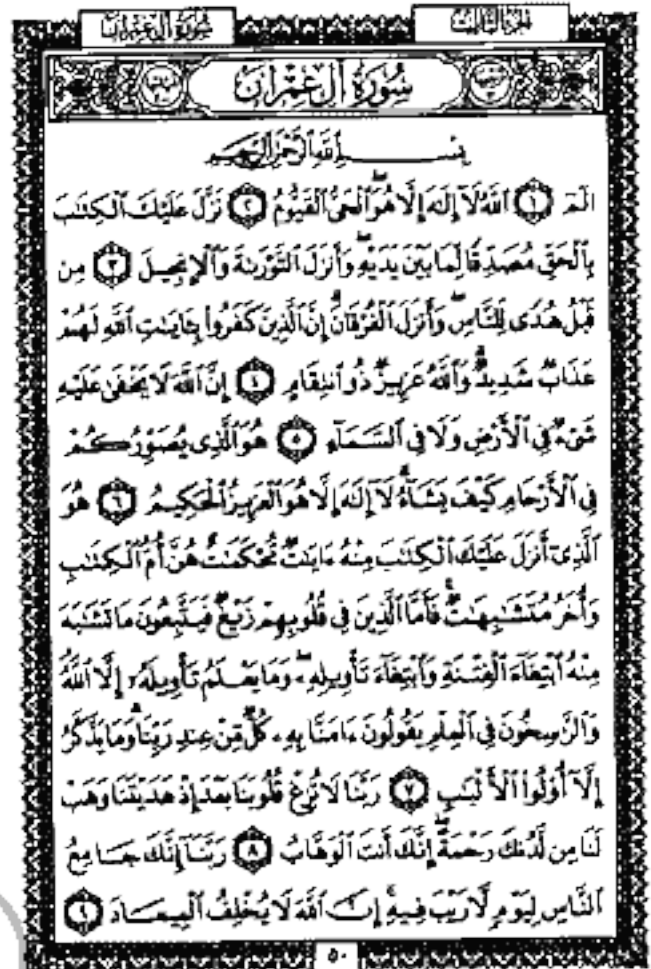 سُورَةُ آلِ عِمْرَانَ الجزء الثالث
سُورَةُ آلِ عِمْرَانَ
بِسْمِ ٱللَّهِ ٱلرَّحْمَٰنِ ٱلرَّحِيمِ
الٓمٓ ١ ٱللَّهُ لَآ إِلَٰهَ إِلَّا هُوَ ٱلْحَىُّ ٱلْقَيُّومُ ٢ نَزَّلَ عَلَيْكَ ٱلْكِتَٰبَ
بِٱلْحَقِّ مُصَدِّقًا لِّمَا بَيْنَ يَدَيْهِ وَأَنزَلَ ٱلتَّوْرَىٰةَ وَٱلْإِنجِيلَ ٣ مِن
قَبْلُ هُدًى لِّلنَّاسِ وَأَنزَلَ ٱلْفُرْقَانَ ۗ إِنَّ ٱلَّذِينَ كَفَرُوا۟ بِـَٔايَٰتِ ٱللَّهِ لَهُمْ
عَذَابٌ شَدِيدٌ ۗ وَٱللَّهُ عَزِيزٌ ذُو ٱنتِقَامٍ ٤ إِنَّ ٱللَّهَ لَا يَخْفَىٰ عَلَيْهِ
شَىْءٌ فِى ٱلْأَرْضِ وَلَا فِى ٱلسَّمَآءِ ٥ هُوَ ٱلَّذِى يُصَوِّرُكُمْ
فِى ٱلْأَرْحَامِ كَيْفَ يَشَآءُ ۚ لَآ إِلَٰهَ إِلَّا هُوَ ٱلْعَزِيزُ ٱلْحَكِيمُ ٦ هُوَ
ٱلَّذِىٓ أَنزَلَ عَلَيْكَ ٱلْكِتَٰبَ مِنْهُ ءَايَٰتٌ مُّحْكَمَٰتٌ هُنَّ أُمُّ ٱلْكِتَٰبِ
وَأُخَرُ مُتَشَٰبِهَٰتٌ ۖ فَأَمَّا ٱلَّذِينَ فِى قُلُوبِهِمْ زَيْغٌ فَيَتَّبِعُونَ مَا تَشَٰبَهَ
مِنْهُ ٱبْتِغَآءَ ٱلْفِتْنَةِ وَٱبْتِغَآءَ تَأْوِيلِهِۦ ۗ وَمَا يَعْلَمُ تَأْوِيلَهُۥٓ إِلَّا ٱللَّهُ ۗ
وَٱلرَّٰسِخُونَ فِى ٱلْعِلْمِ يَقُولُونَ ءَامَنَّا بِهِۦ كُلٌّ مِّنْ عِندِ رَبِّنَا ۗ وَمَا يَذَّكَّرُ
إِلَّآ أُو۟لُوا۟ ٱلْأَلْبَٰبِ ٧ رَبَّنَا لَا تُزِغْ قُلُوبَنَا بَعْدَ إِذْ هَدَيْتَنَا وَهَبْ
لَنَا مِن لَّدُنكَ رَحْمَةً ۚ إِنَّكَ أَنتَ ٱلْوَهَّابُ ٨ رَبَّنَآ إِنَّكَ جَامِعُ
ٱلنَّاسِ لِيَوْمٍ لَّا رَيْبَ فِيهِ ۚ إِنَّ ٱللَّهَ لَا يُخْلِفُ ٱلْمِيعَادَ ٩
٥٠